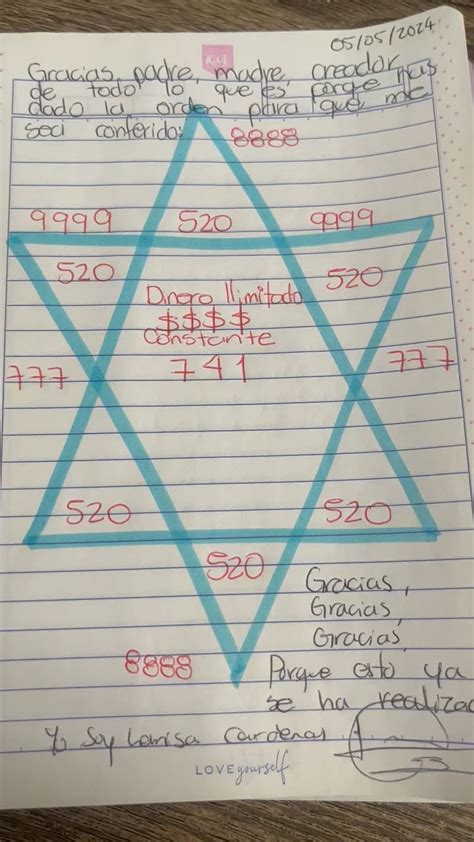 05/05/2024
Gracias, padre, madre creador
de todo lo que es porque has
dado la orden para que me
sea conferido:
8888
9999 520 9999
520 520
Dinero Ilimitado
$$$$
Constante
777 741 777
520 520
520
Gracias,
Gracias,
Gracias,
8888
Porque esto ya
se ha realizad
Yo Soy Larisa Cardenas
LOVE yourself